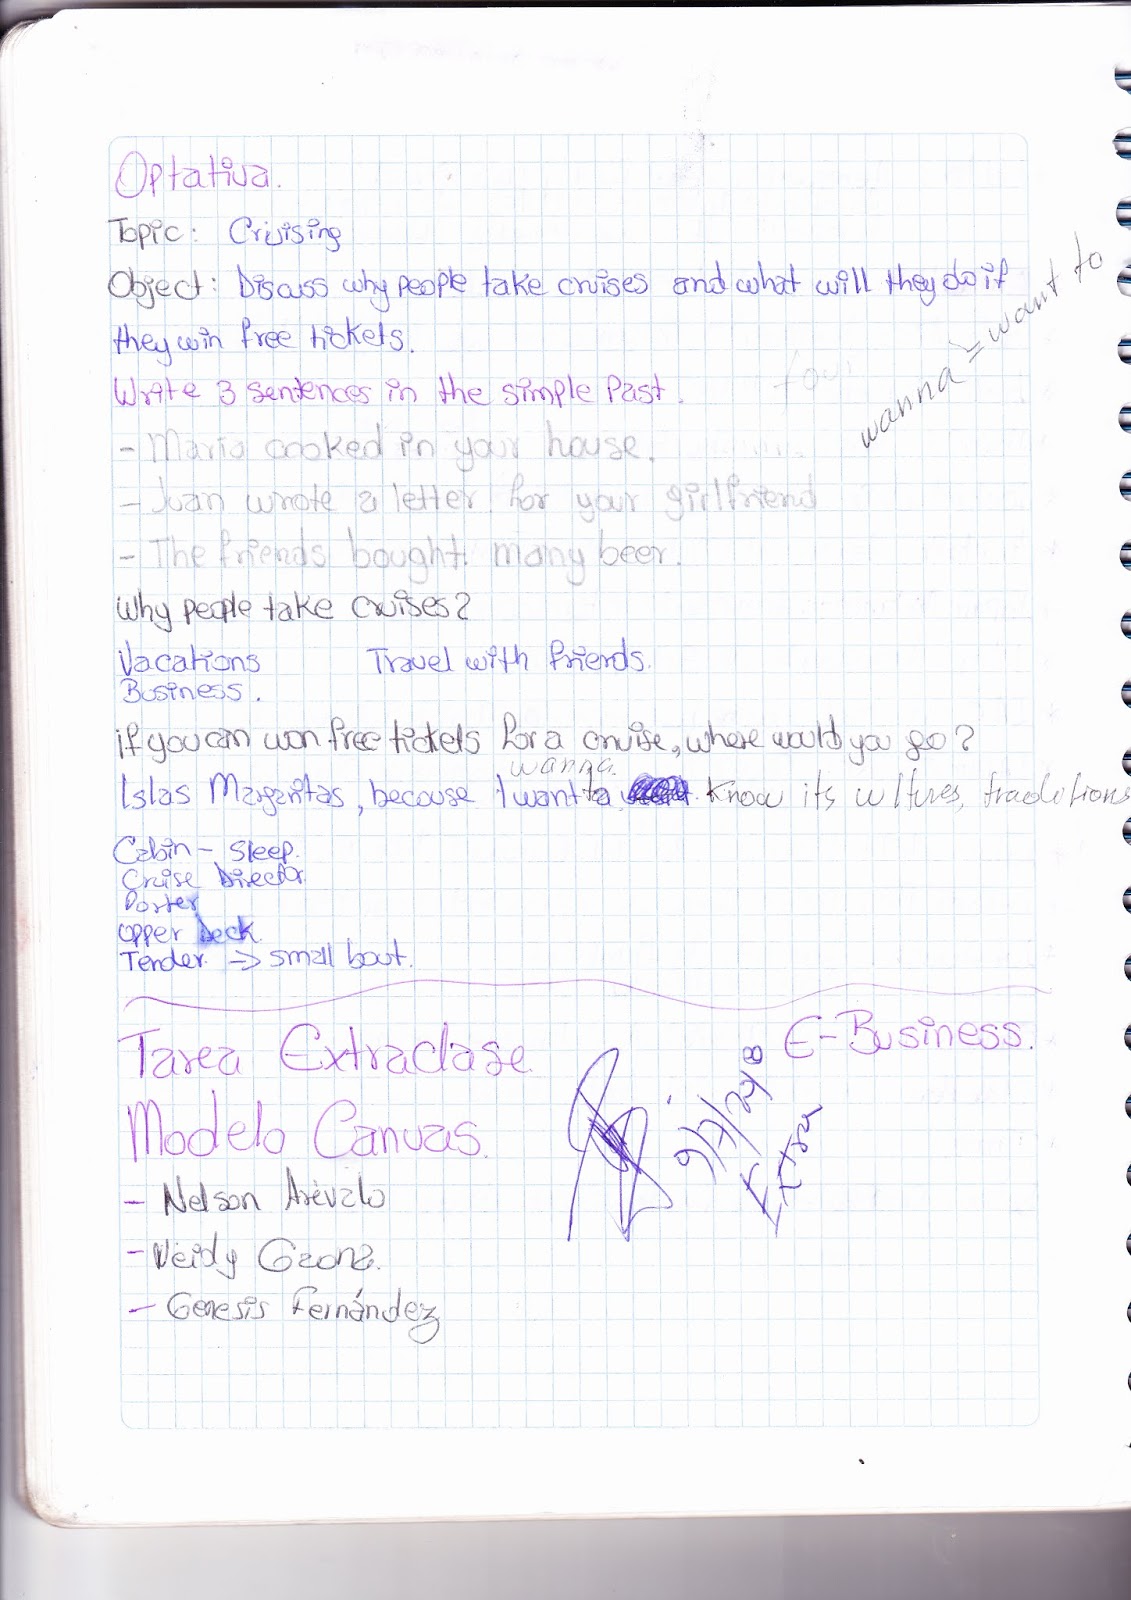 Optativa.
Topic: Cruising
Object: Discuss why people take cruises and what will they do if
they win free tickets.
wanna = want to
Write 3 sentences in the simple Past.
- Maria cooked in your house.
- Juan wrote a letter for your girlfriend
- The friends bought many beer.
Why people take cruises?
Vacations Travel with friends.
Business.
if you can won free tickets for a cruise, where would you go?
wanna.
Islas Margaritas, because I want to know its cultures, traditions
Cabin - Sleep.
Cruise Director
Porter
Upper Deck.
Tender. → small bout.
E-Business.
Tarea Extraclase
Modelo Canvas.
Extra
- Nelson Arévalo
- Neidy
- Genesis Fernández